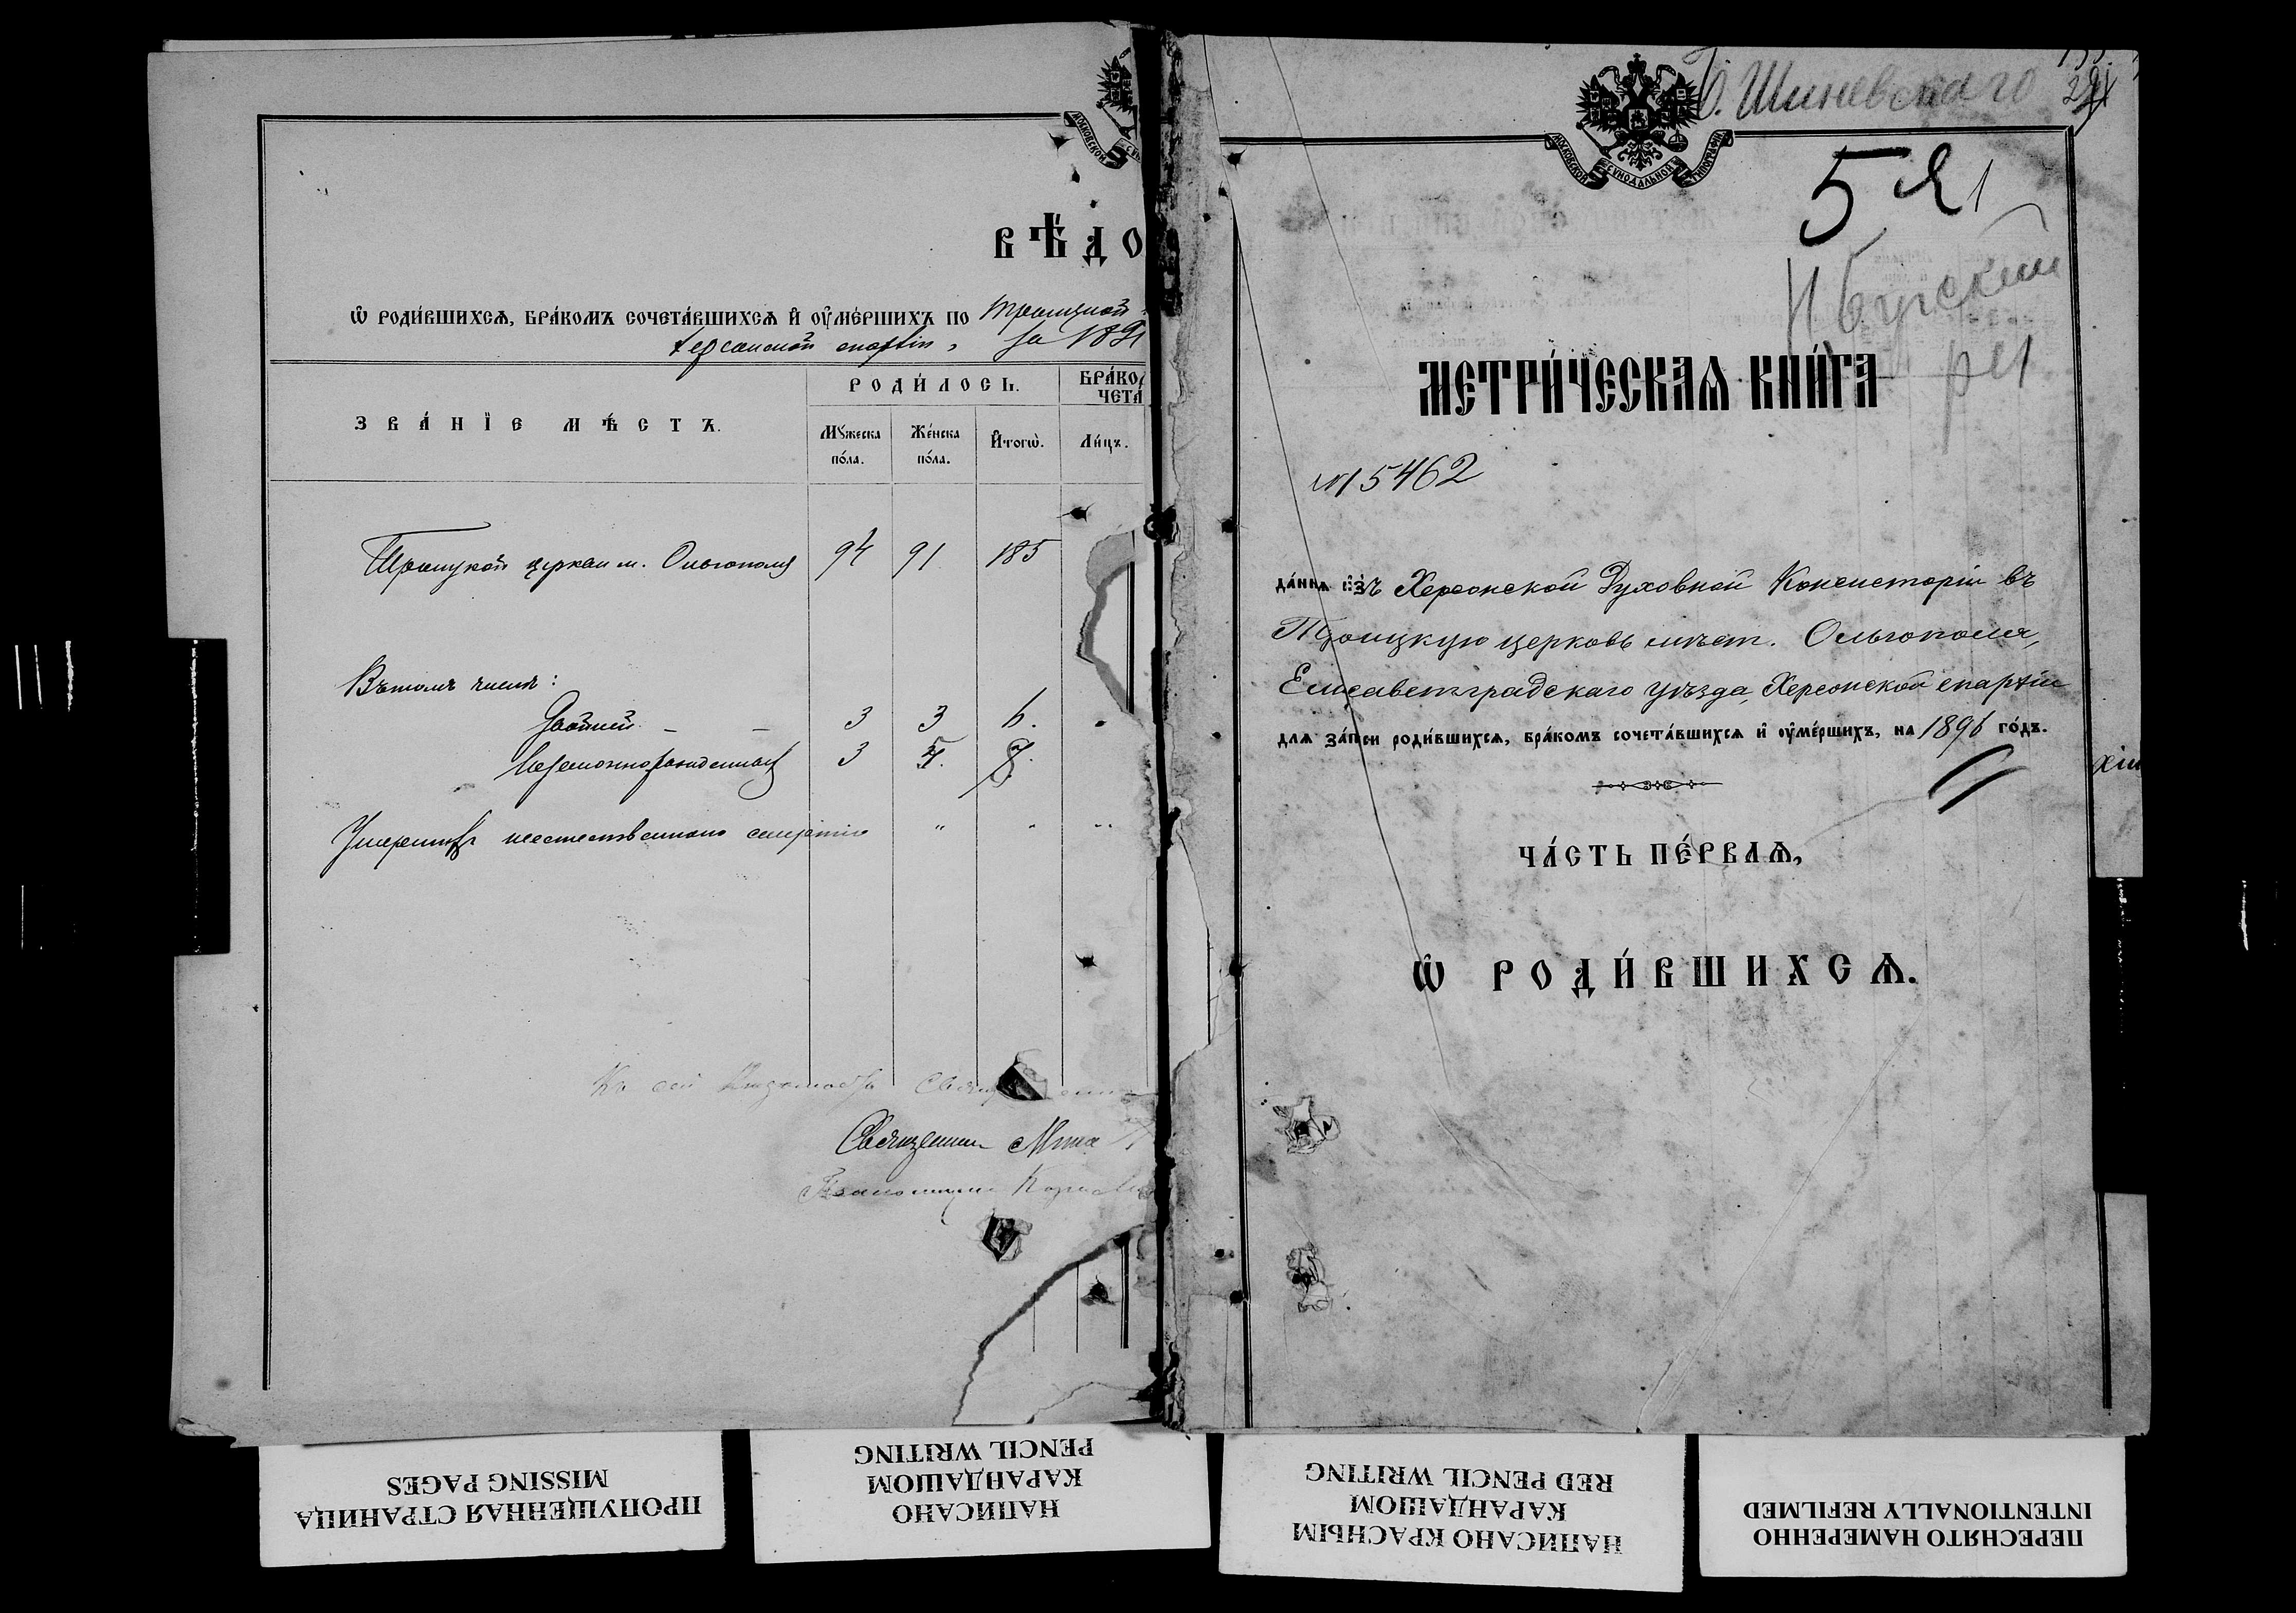 ВѢДО
Ѡ РОДИ́ВШИХСѦ, БРА́КОМЪ СОЧЕТА́ВШИХСѦ И҆ ОУ҆МЕ́РШИХЪ ПО Троицкой
Херсонской епархіи, за 189
ЗВА́НЇЕ МѢ́СТЪ.
РОДИ́ЛОСЬ.
БРА́КО
ЧЕТА
Мꙋ́жеска по́ла.
Же́нска по́ла.
И҆тогѡ̀.
Ли́цъ.
Троицкой церкви м. Ольгополя 94 91 185
Въ томъ числѣ:
Двойней 3 3 6.
Незаконнорожденныхъ 3
Умершихъ неестественною смертію
Къ сей
Священник
МОСКОВСКОЙ СѴНОДАЛЬНОЙ ТИПОГРАФІИ
Шиневскаго
5 я
МЕТРИ́ЧЕСКАѦ КНИ́ГА
№ 5462
да́нна и҆зъ Херсонской Духовной Консисторіи въ
Троицкую церковь мѣст. Ольгополя,
Елисаветградскаго уѣзда, Херсонской епархіи
для за́писи роди́вшихсѧ, бра́комъ сочета́вшихсѧ и҆ оу҆ме́ршихъ, на 1896 го́дъ.
ЧА́СТЬ ПЕ́РВАѦ,
Ѡ РОДИ́ВШИХСѦ.
ПРОПУЩЕННАЯ СТРАНИЦА
MISSING PAGES
НАПИСАНО
КАРАНДАШОМ
PENCIL WRITING
НАПИСАНО КРАСНЫМ
КАРАНДАШОМ
RED PENCIL WRITING
ПЕРЕСНЯТО НАМЕРЕННО
INTENTIONALLY REFILMED